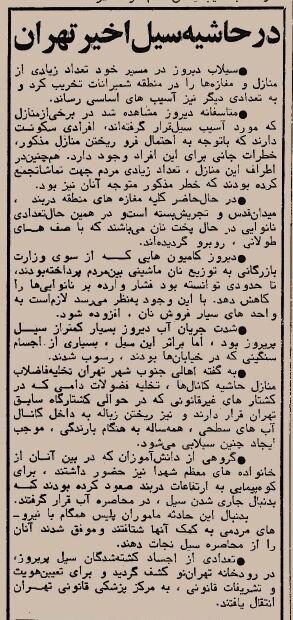 در حاشیه سیل اخیر تهران
●سیلاب دیروز در مسیر خود تعداد زیادی از
منازل و مغازه‌ها را در منطقه شمیرانات تخریب کرد و
به تعدادی دیگر نیز آسیب های اساسی رساند.
●متاسفانه دیروز مشاهده شد در برخی‌ازمنازل
که مورد آسیب سیل‌قرار گرفته‌اند، افرادی سکونت
دارند که باتوجه به احتمال فرو ریختن منازل مذکور،
خطرات جانی برای این افراد وجود دارد. هم‌چنین‌در
اطراف این منازل ، تعداد زیادی مردم جهت تماشاتجمع
کرده بودند که خطر مذکور متوجه آنان نیز بود.
●در حال‌حاضر کلیه مغازه های منطقه دربند ،
میدان‌قدس و تجریش‌بسته است‌و در همین حال‌تعدادی
نانوایی در حال پخت نان می‌باشند که با صف های
طولانی ، روبرو گردیده‌اند.
●دیروز کامیون هایی که از سوی وزارت
بازرگانی به توزیع نان ماشینی بین‌مردم پرداخته‌بودند،
تا حدودی توانسته بود فشار وارده بر نانوایی‌ها را
کاهش دهد. با این وجود به‌نظر می‌رسد لازم‌است به
واحد های سیار فروش نان ، افزوده شود.
●شدت جریان آب دیروز بسیار کمتراز سیل
پریروز بود ، اما براثر این سیل ، بسیاری از اجسام
سنگینی که در خیابان‌ها بودند ، رسوب شدند.
●به گفته اهالی جنوب شهر تهران تخلیه‌فاضلاب
منازل حاشیه کانال‌ها ، تخلیه فضولات دامی که در
کشتار های غیرقانونی که در حوالی کشتارگاه سابق
تهران قرار دارند و نیز ریختن زباله به داخل کانال
آب های سطحی ، همه‌ساله به هنگام بارندگی ، موجب
ایجاد جنین سیلابی می‌شود.
●گروهی از دانش‌آموزان که در بین آنان از
خانواده های معظم شهدا نیز حضور داشتند ، برای
کوهپیمایی به ارتفاعات دربند صعود کرده بودند کــه
بدنبال جاری شدن سیل ، در محاصره آب قرار گرفتند.
بدنبال این حادثه ماموران پلیس همگام با نیرو-
های مردمی به کمک آنها شتافتند وموفق شدند آنان
را از محاصره سیل نجات دهند.
●تعدادی از اجساد کشته‌شدگان سیل پریروز،
در رودخانه تهران‌نو کشف گردید و برای تعیین‌هویت
و تشریفات قانونی ، به مرکز پزشکی قانونی تهــران
انتقال یافتند.